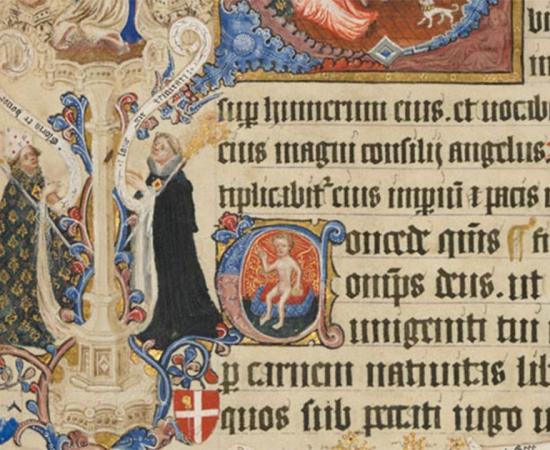 sup humerum eius. et uocab
eius magni consilij angelus:
tiplicabit² eius impiū ⁊ pacis
Concede qūs ¶
omīps deus. ut
unigeniti tui
p carnem natiuitas lib
quos sub peccati iugo u